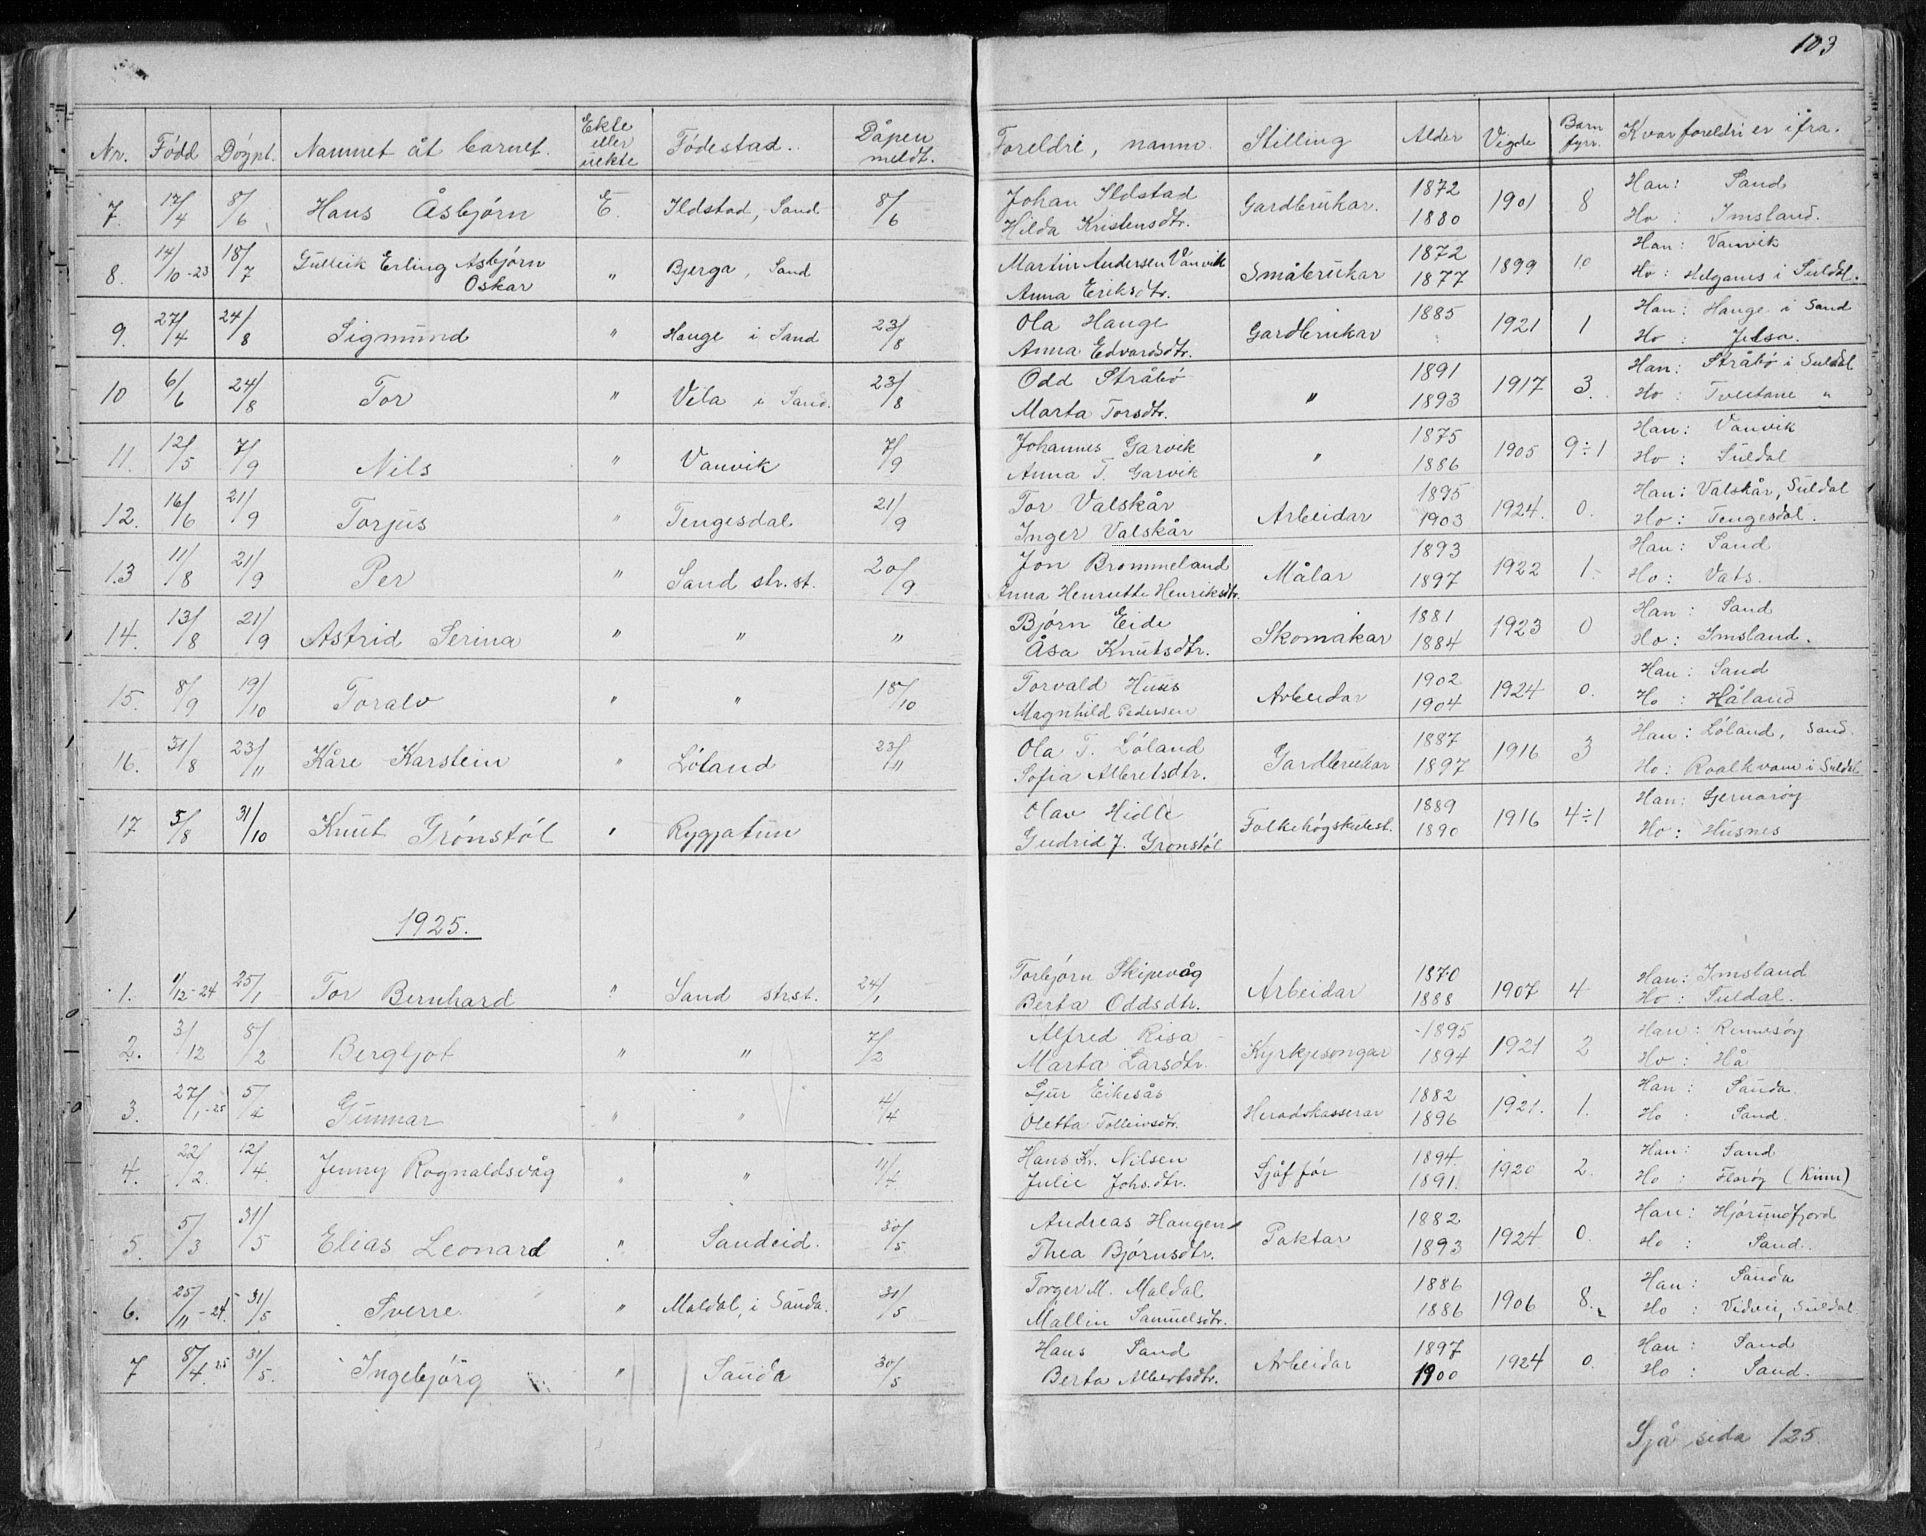 103
Nr. Född Döypt. Namnet åt barnet. Ekte eller uekte Födestad. Dåpen meldt. Foreldri, namn. Stilling Alder Vigde Barn fyrr. Kvar foreldri er ifra.
7. 17/4 8/6 Hans Åsbjørn E. Ilstad, Sand 8/6 Johan Ilstad Gardbrukar. 1872 1901 8 Han: Sand
Hilda Kristensdtr. 1880 Ho: Imsland.
8. 14/10-23 18/7 Gulleik Erling Asbjørn Oskar " Bjerga, Sand Martin Andersen Vanvik Småbrukar 1872 1899 10 Han: Vanvik
Anna Eriksdtr. 1877 Ho: Helganes i Suldal.
9. 27/4 24/8 Sigmund " Hauge i Sand 23/8 Ola Hauge Gardbrukar 1885 1921 1 Han: Hauge i Sand
Anna Edvardsdtr. Ho: Jelsa.
10 6/6 24/8 Tor " Vela i Sand. 23/8 Odd Stråbø " 1891 1917 3. Han: Stråbø i Suldal
Marta Torsdtr. 1893 Ho: Tveitane "
11. 12/5 7/9 Nils " Vanvik 7/9 Johannes Garvik " 1875 1905 9÷1 Han: Vanvik
Anna T. Garvik 1886 Ho: Suldal
12. 16/6 21/9 Torjus " Tengesdal 21/9 Tor Valskår Arbeidar 1895 1924. 0. Han: Valskår, Suldal
Inger Valskår 1903 Ho: Tengesdal.
13 11/8 21/9 Per " Sand str.st. 20/9 Jon Brommeland Målar 1893 1922 1. Han: Sand
Anna Henriette Henriksdtr. 1897 Ho: Vats.
14. 13/8 21/9 Astrid Serina " " " Bjørn Eide Skomakar 1881 1923 0 Han: Sand
Åsa Knutsdtr. 1884 Ho: Imsland.
15. 8/9 19/10 Toralv " " 18/10 Torvald Huus Arbeidar 1902 1924 0. Han: Sand
Magnhild Pedersen 1904 Ho: Håland
16. 31/8 23/11 Kåre Karstein " Løland 23/11 Ola T. Løland Gardbrukar 1887 1916 3 Han: Løland, Sand.
Sofia Albretsdtr. 1897 Ho: Roalkvam i Suldal
17 5/8 31/10 Knut Grønstøl " Ryggjatun Olav Hidle Folkehøgskulest. 1889 1916 4÷1 Han: Sjernarøy
Gudrid J. Grønstøl 1890 Ho: Husnes
1925.
1. 1/12-24 25/1 Tor Bernhard " Sand strst. 24/1 Torbjørn Skipevåg Arbeidar 1870 1907 4 Han: Imsland
Berta Oddsdtr. 1888 Ho: Suldal.
2. 3/12 8/2 Bergljot " " 7/2 Alfred Risa Kyrkjesongar 1895 1921 2 Han: Rennesøy
Marta Larsdtr. 1894 Ho: Hå
3. 27/1-25 5/4 Gunnar " " 4/4 Sjur Eikesås Heradskasserar 1882 1921. 1. Han: Sauda.
Oletta Tolleivsdtr. 1896 Ho: Sand.
4. 22/2. 12/4. Jenny Rognaldsvåg " " 11/4 Hans Kr. Nilsen Sjåffør 1894. 1920 2. Han: Sand
Julie Johs.dtr. 1891. Ho: Florøy (Kinn)
5. 5/3 31/5 Elias Leonard " Sandeid. 30/5. Andreas Haugen Paktar 1882 1924 0. Han: Hjørundfjord
Thea Bjørnsdtr. 1893 Ho: Sand.
6. 25/11-24. 31/5 Sverre " Maldal, i Sauda. 31/5 Torger M. Maldal 1886 1906 8. Han: Sauda
Mallin Samuelsdtr. 1886 Ho: Vidvei, Suldal
7 8/4.25 31/5. Ingebjörg " Sauda 30/5 Hans Sand Arbeidar 1897 1924 0. Han: Sand
Berta Albertsdtr. 1900 Ho: Sand.
Sjå sida 125.